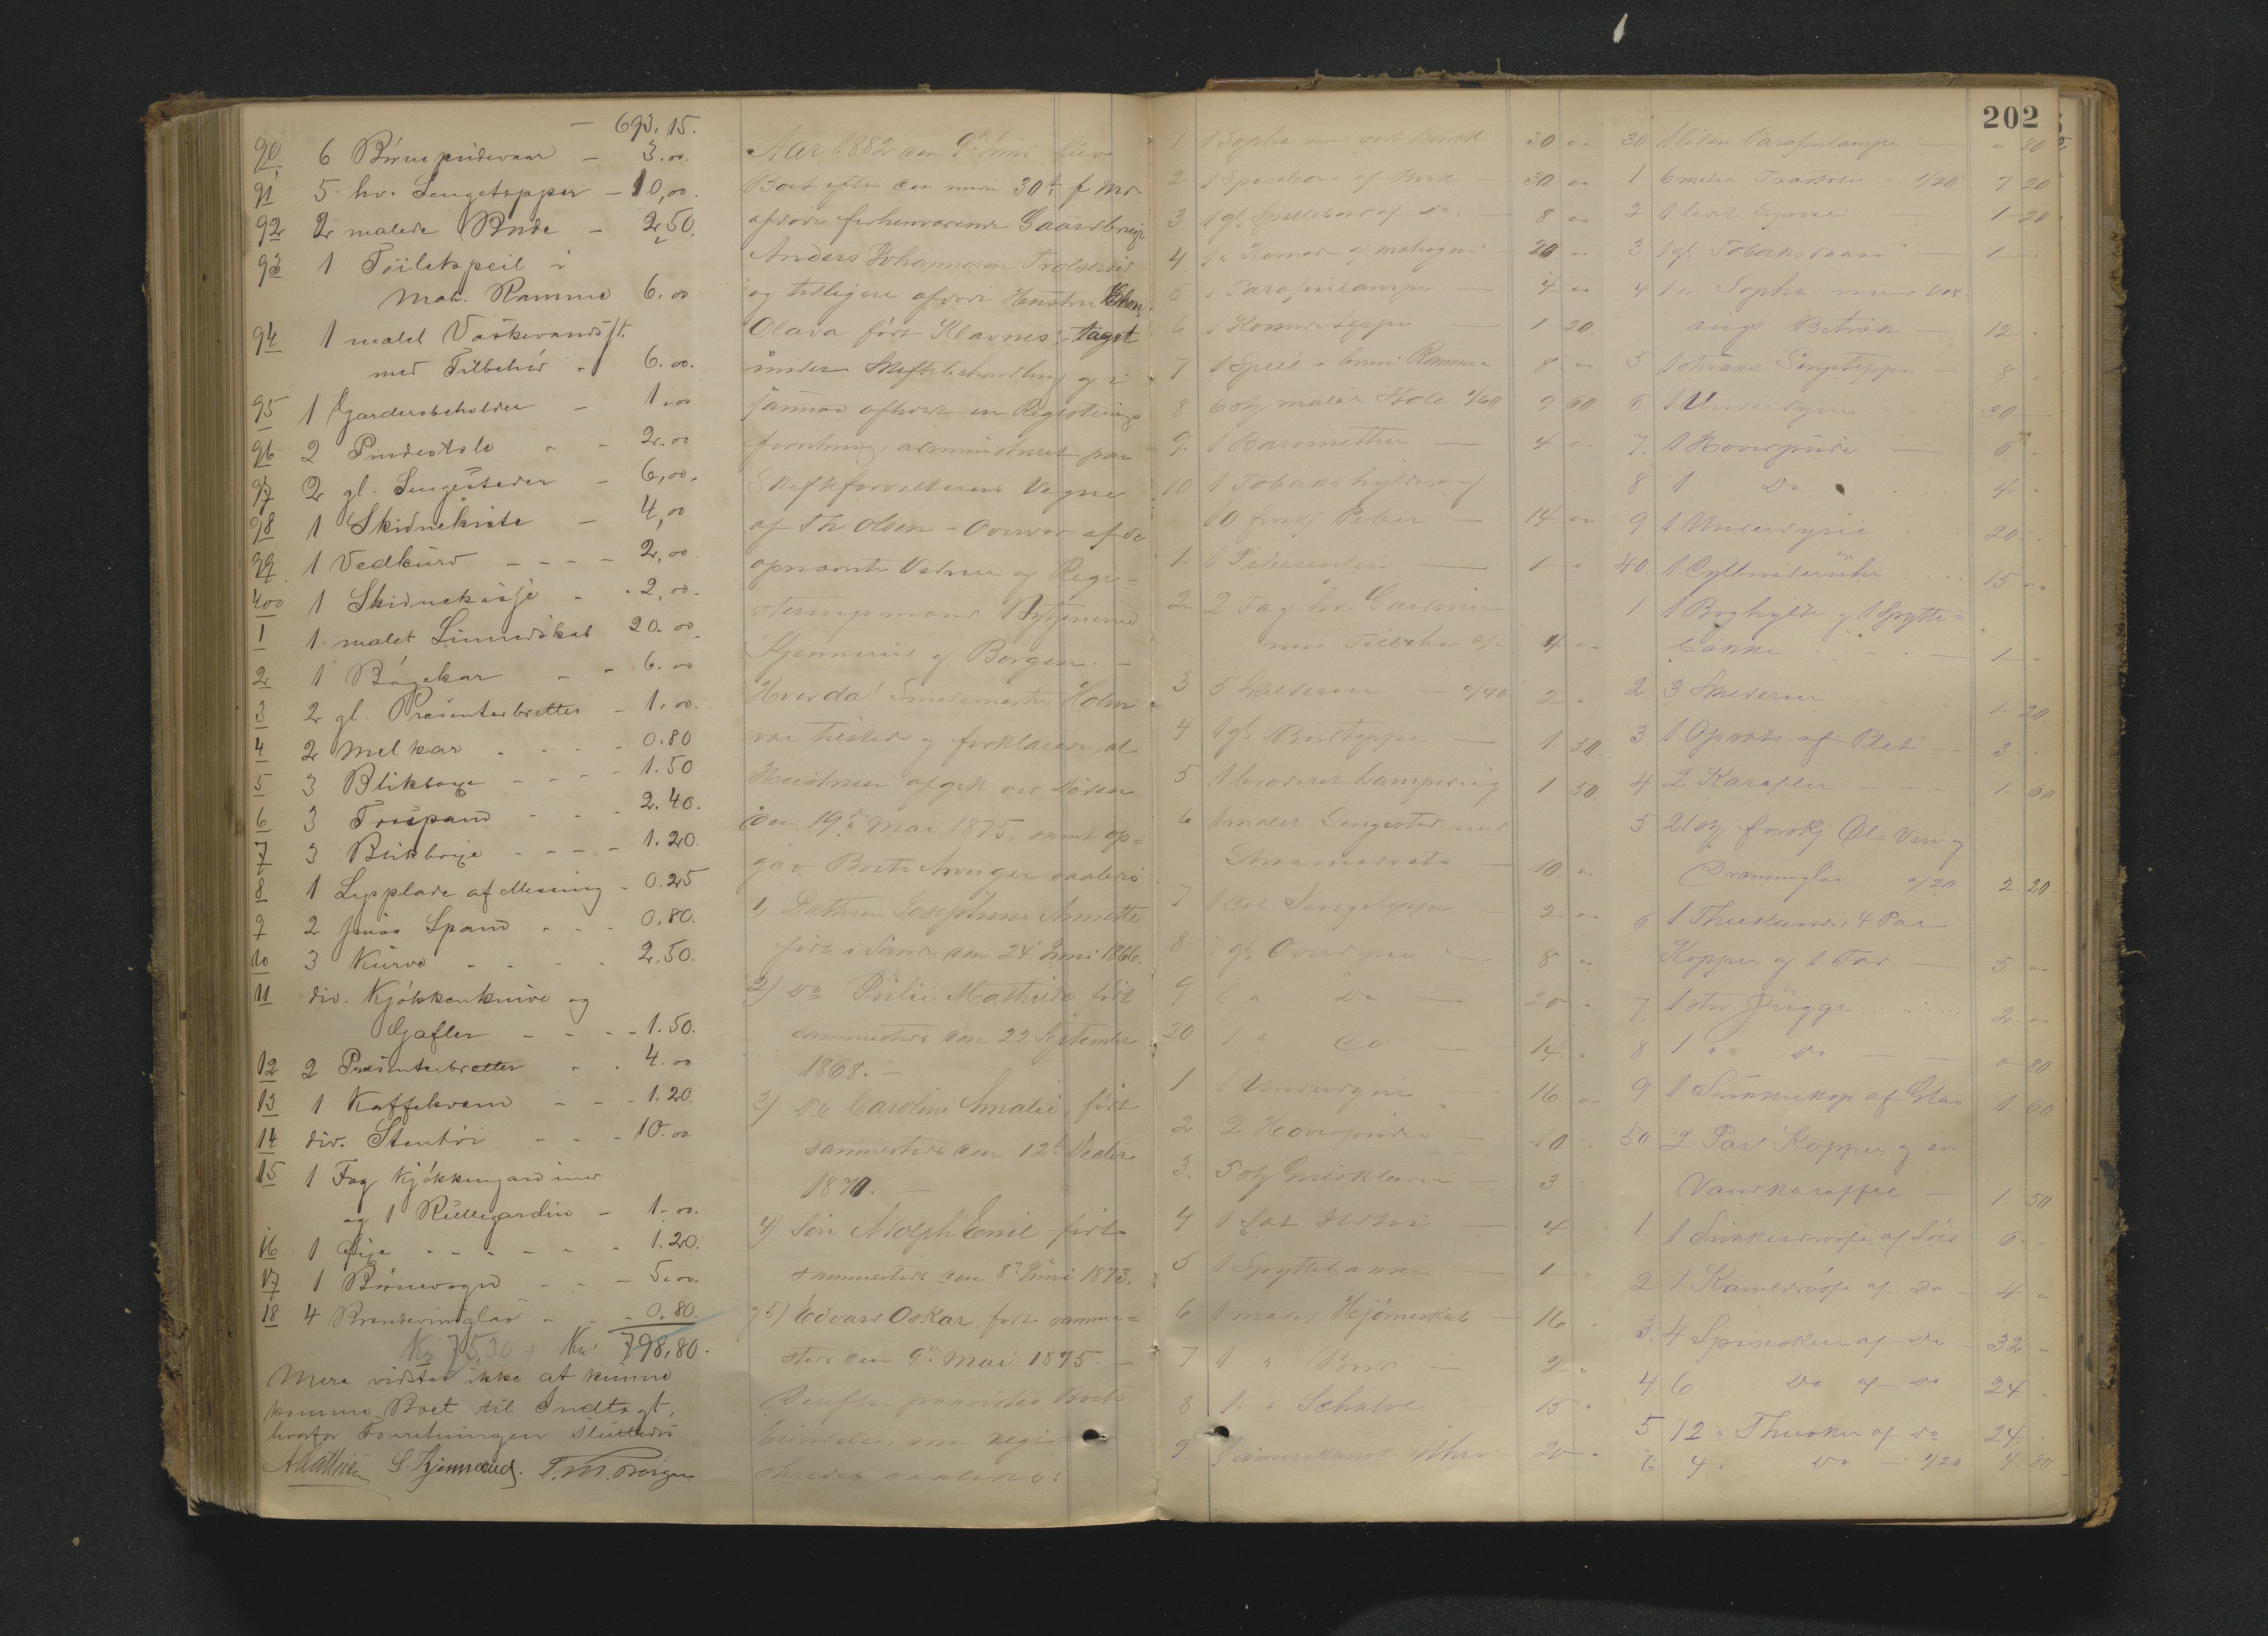 693.15.
90 6 Børnepudevaar - 3.00.
91 5 hv. Sengetepper - 10,00.
92 2 malede Borde - 2,50.
93 1 Toiletspeil i
Mah. Ramme 6.00
94 1 malet Vaskevandsft.
med Tilbehør - 6.00.
95 1 Garderobeholder - 1.00
96 2 Pindestole - - 2.00
97 2 gl. Sengesteder - 6,00.
98 1 Skidnekiste - 4,00
99 1 Vedkurv - - - - 2,00
400 1 Skidnekasje - - 2,00.
1 1 malet Linnedskab 20.00.
2 1 Bøgekar - - 6.00
3 2 gl. Præsenterbretter - 1.00.
4 2 Melkar - - - 0.80
5 3 Blikboxe - - - - 1.50
6 3 Træspand - - - 2.40.
7 3 Blikboxe - - - - 1.20.
8 1 Lysplade af Messing - 0.25
9 2 Spand - - - 0.80.
10 3 Kurve - - - - 2.50.
11 div. Kjøkkenknive og
Gafler - - - - 1.50.
12 2 Præsenterbretter - - 4.00
13 1 Kaffekværn - - - 1.20.
14 div. Stentøi - - - 10.00.
15 1 Fag Kjøkkengardiner
og 1 Rullegardin - 1.00.
16 1 Øxe - - - - - - 1.20.
17 1 Børnevogn - - - 5.00.
18 4 Brændevinsglas - - - 0.80.
Kr 798,80.
Mere vidstes ikke at kunne
komme Boet til Indtægt,
hvorfor Forretningen sluttedes
AMathisen S. Kjennerud. T. M. Borgen
Aar 1882 den 9de Juni blev
Boet efter den 30te f. Md
afdøde forhenværende Gaardbruger
Anders Johannesen
og tidligere afdøde Hustru
Olava født Klavnes, taget
under Skiftebehandling og i
samme afholdt en Registrerings
forretning, administreret paa
Skifteforvalterens Vegne
af Th Olsen - Overvær af de
opnævnte Vidner og Regi=
streringsmænd
Kjennerud og Borgen. -
Hverdal Smedemester Holm
var tilstede og forklarede, at
Hustruen afgik ved Døden
den 19de Mai 1875, samt op=
gav Boets Arvinger saaledes
1, Datteren Josephine Annette
født i Sande den 24de Juni 1866.
2) Do Julie Mathilde født
sammesteds den 22 September
1868. -
3) Do Caroline Amalie, født
sammesteds den 12te Decbr
1870. -
4) Søn Adolph Emil født
sammesteds den 8de Juni 1873.
og 5) Edvard Oskar, født samme=
steds den 9de Mai 1875. -
Derefter paavistes Boets
Eiendele, som regi
streredes saaledes:
202
1 1 Sopha med sort Betræk 30 "
2 1 Spisebord af Birk - 30 "
3 1 gl. Spillebord af Do. - 8 "
4 1 " Komode af mahogni - 20 "
5 1 Parafinlampe - 4 "
6 1 Komodeteppe - 1 20.
7 1 Speil i brun Ramme 8 "
8 6 stk malede Stole a/1,60 9 60
9. 1 Barometer - 4 "
10 1 Tobakshylde og
10 forskj Piber - 14 "
1. 1 - 1 "
2. 2 Fag hv. Gardiner
med Tilbehør 4 "
3 5 Skilderier - a/40 2 "
4 1 gl. Bordteppe - 1. 50.
5 1 broderet Lampering 1 50.
6 1 malet Sengested med
Straamadrats - 10. "
7 1 Sengeteppe - 2 "
8 1 gl. Overdyne - 8 "
9 1 " Do - 20 "
20 1 " Do - 14 "
1 1 Underdyne - 16. "
2 2 Hovedpuder - 10 "
3. 5 stk - 3
4 1 - 4
5 1 Spyttebakke - 1 "
6 1 malet Hjørneskab - 16 "
7 1 " Bord - 2 "
8 1. " Schatol - 15 "
9. 1 amerikansk Uhr - 20 "
30 1 liten Parafinlampe " 80
1 6 malede Træstole - 1/20 7 20
2 1 lidet Speil 1 20
3 1 gl. Tobaksdaase - 1 -
4 1 " Sopha med vox
dugs Betræk - 12 "
5 1 Sengeteppe - 8 "
6 1 Underdyne 20 -
7. 1 Hovedpude - 6 "
8 1 Do 4 "
9 1 Underdyne 20 "
40. 1 Cylinderuhr 15 "
1 1 Boghylde og 1 Spytte=
bakke - 1 "
2. 3 Skilderier 1 20.
3. 1 Opsats af Plet - 3 "
4 2 Karafler - 1 60
5 21 stk forskj Øl= Vin og
Drammeglas a/20 2 20.
6 1 Theekande, 4 Par
Kopper og 1 Fad - 5 "
7 1 stor Jugge 2 "
8 1 " Do - " 80
9 1 Sukkerkop af Glas 1. 60
50 2 Par Kopper og en
Vandkaraffel - 1. 50
1. 1 Sukkerskee af Sølv 6 "
2 1 af Do - 4 "
3. 4 Spiseskeer af Do - 32 "
4 6 Do af Do 24 "
5 12 " Theskeer af Do 24 "
6 4 " Do - 1/20 4. 80